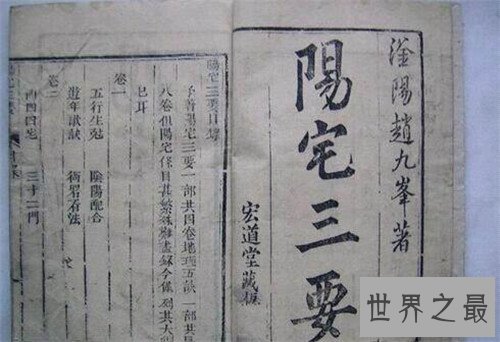 滏陽趙九峯著
陽宅三要
宏道堂藏板
陽宅三要目錄
予著陽宅三要一部共四卷地理五訣一部共
八卷但陽宅條目甚繁殊難盡錄今僅列其大
已耳
卷一
五行生剋 陰陽配合
遊年歌訣 衙署看法
卷二
四宅 三十二門
世界之最